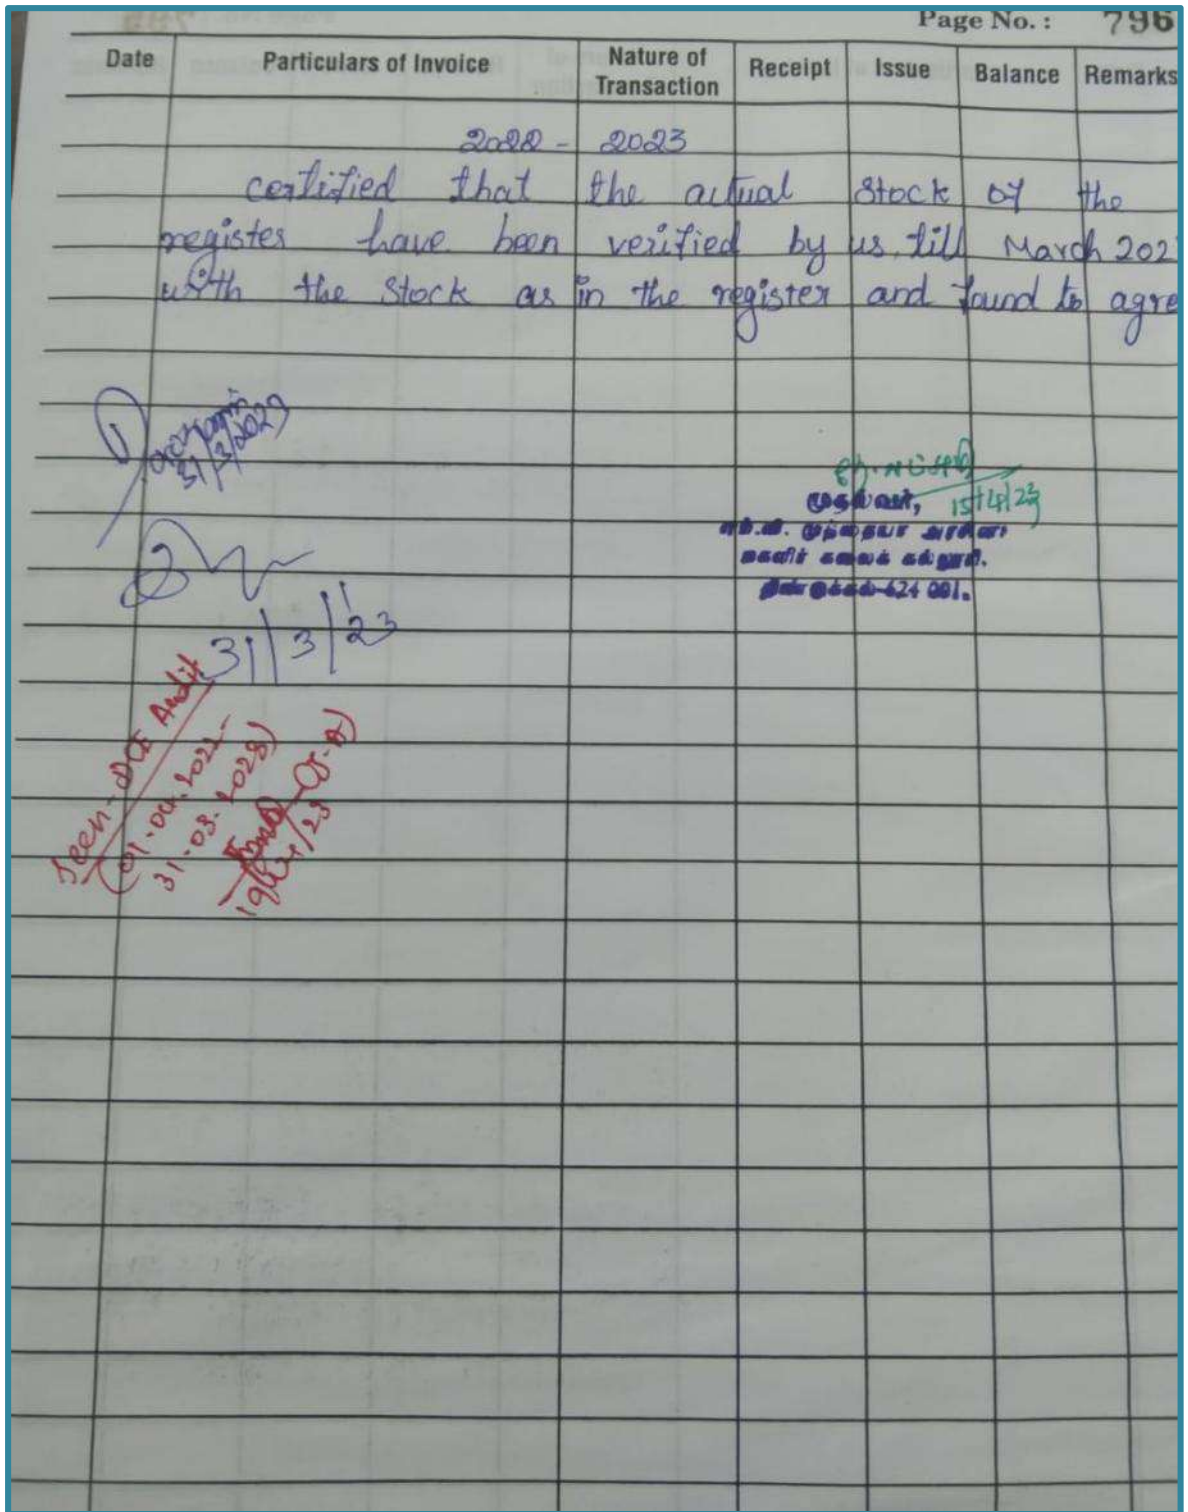 Page No. : 796
Date Particulars of Invoice Nature of Transaction Receipt Issue Balance Remarks
2022 - 2023
certified that the actual Stock of the
register have been verified by us, till March 202
with the Stock as in the register and found to agre
1
31/3/2023
15/4/23
முதல்வர்,
எம்.வி. முத்தையா அரசினர்
மகளிர் கலைக் கல்லூரி.
திண்டுக்கல்-624 001.
2
31/3/23
Seen-DCE Audit
(01.04.2022-
31.03.2023)
19/4/23